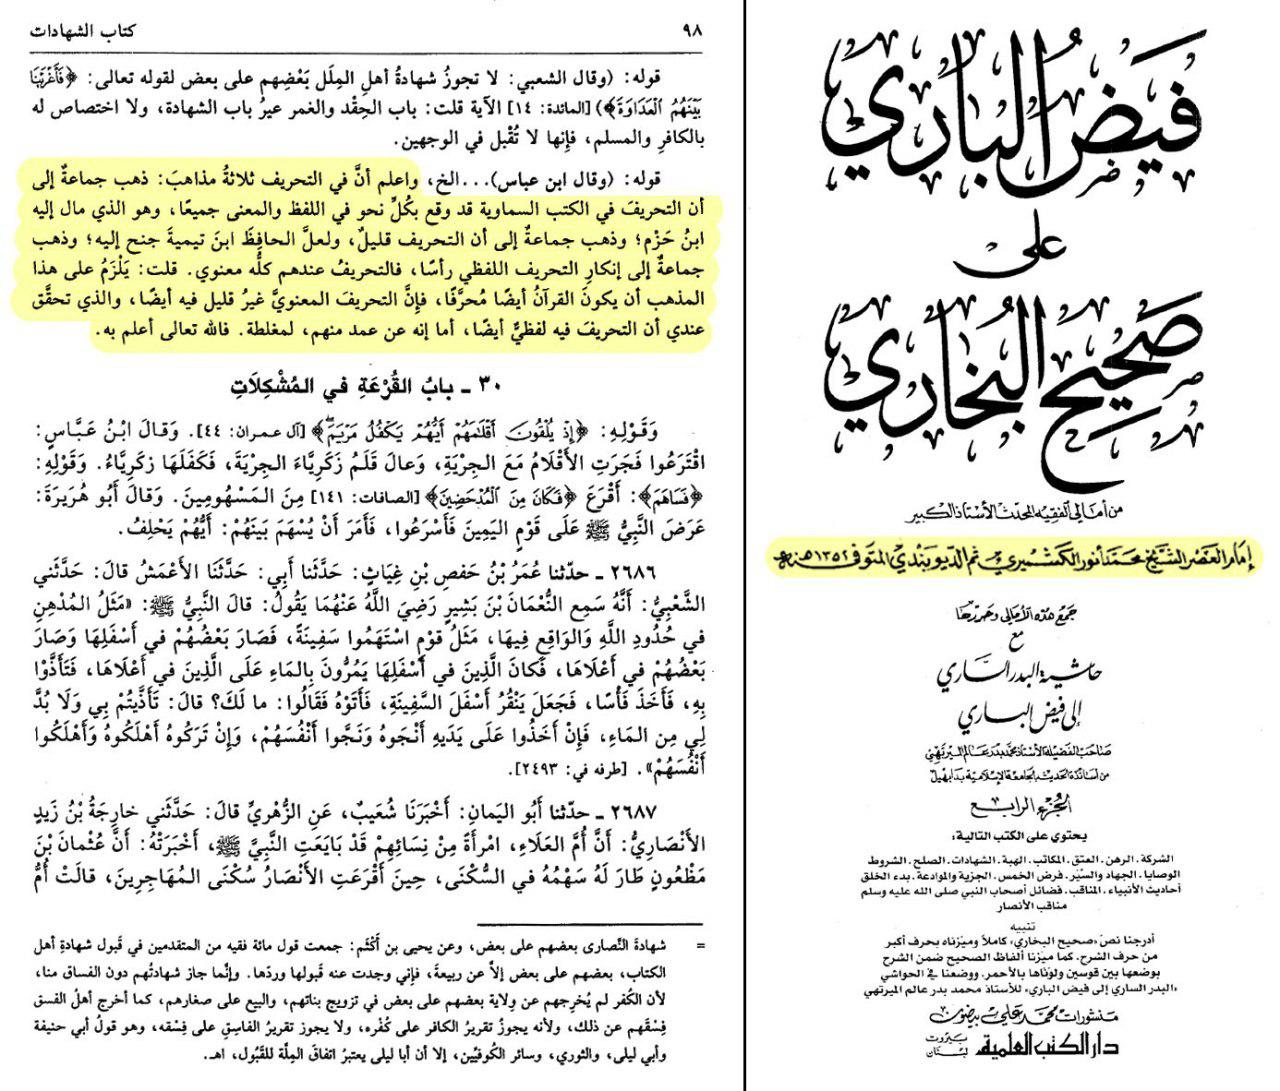 ٩٨
كتاب الشهادات
قوله: (وقال الشعبي: لا تجوزُ شهادةُ أهلِ المِلَل بَعْضِهم على بعض لقوله تعالى: ﴿فَأَغْرَيْنَا
بَيْنَهُمُ الْعَدَاوَةَ﴾) [المائدة: ١٤] الآية قلت: باب الحِقْد والغمر غيرُ باب الشهادة، ولا اختصاص له
بالكافرِ والمسلم، فإِنها لا تُقْبل في الوجهين.
قوله: (وقال ابن عباس)...الخ، واعلم أنَّ في التحريف ثلاثةُ مذاهبَ: ذهب جماعةٌ إلى
أن التحريفَ في الكتب السماوية قد وقع بكُلِّ نحو في اللفظ والمعنى جميعًا، وهو الذي مال إليه
ابنُ حَزْم؛ وذهب جماعةٌ إلى أن التحريف قليلٌ، ولعلَّ الحافِظَ ابنَ تيميةَ جنح إليه؛ وذهب
جماعةٌ إلى إنكارِ التحريف اللفظي رأسًا، فالتحريفُ عندهم كلُّه معنوي. قلت: يَلْزَمُ على هذا
المذهب أن يكونَ القرآنُ أيضًا مُحرَّفًا، فإِنَّ التحريفَ المعنويَّ غيرُ قليل فيه أيضًا، والذي تحقَّق
عندي أن التحريفَ فيه لفظيٌّ أيضًا، أما إنه عن عمد منهم، لمغلطة. فالله تعالى أعلم به.
٣٠ ـ بابُ القُرْعَةِ في المُشْكِلَاتِ
وَقَوْلِهِ: ﴿إِذْ يُلْقُونَ أَقْلَامَهُمْ أَيُّهُمْ يَكْفُلُ مَرْيَمَ﴾ [آل عمران: ٤٤]. وَقالَ ابْنُ عَبَّاسٍ:
اقْتَرَعُوا فَجَرَتِ الأَقْلَامُ مَعَ الجِرْيَةِ، وَعالَ قَلَمُ زَكَرِيَّاءَ الجِرْيَةَ، فَكَفَلَهَا زكَرِيَّاءُ. وَقَوْلِهِ:
﴿فَسَاهَمَ﴾: أَقْرَعَ ﴿فَكَانَ مِنَ الْمُدْحَضِينَ﴾ [الصافات: ١٤١] مِنَ المَسْهُومِينَ. وَقالَ أَبُو هُرَيرَةَ:
عَرَضَ النَّبِيُّ ﷺ عَلَى قَوْمٍ اليَمِينَ فَأَسْرَعُوا، فَأَمَرَ أَنْ يُسْهَمَ بَينَهُمْ: أَيُّهُمْ يَحْلِفُ.
٢٦٨٦ ـ حدّثنا عُمَرُ بْنُ حَفصِ بْنِ غِيَاثٍ: حَدَّثَنَا أَبِي: حَدَّثَنَا الأَعْمَشُ قالَ: حَدَّثَنِي
الشَّعْبِيُّ: أَنَّهُ سَمِعَ النُّعْمَانَ بْنَ بَشِيرٍ رَضِيَ اللَّهُ عَنْهُمَا يَقُولُ: قالَ النَّبِيُّ ﷺ: «مَثَلُ المُدْهِنِ
في حُدُودِ اللَّهِ وَالوَاقِعِ فِيهَا، مَثَلُ قَوْمٍ اسْتَهَمُوا سَفِينَةً، فَصَارَ بَعْضُهُمْ في أَسْفَلِهَا وَصَارَ
بَعْضُهُمْ في أَعْلَاهَا، فَكانَ الَّذِينَ في أَسْفَلِهَا يَمُرُّونَ بِالمَاءِ عَلَى الَّذِينَ في أَعْلَاهَا، فَتَأَذَّوْا
بِهِ، فَأَخَذَ فَأْسًا، فَجَعَلَ يَنْقُرُ أَسْفَلَ السَّفِينَةِ، فَأَتَوْهُ فَقَالُوا: ما لَكَ؟ قالَ: تَأَذَّيتُمْ بِي وَلَا بُدَّ
لِي مِن المَاءِ، فَإِنْ أَخَذُوا عَلَى يَدَيهِ أَنْجَوهُ وَنَجَّوا أَنْفُسَهُمْ، وَإِنْ تَرَكُوهُ أَهْلَكُوهُ وَأَهْلَكُوا
أَنْفُسَهُمْ». [طرفه في: ٢٤٩٣].
٢٦٨٧ ـ حدّثنا أَبُو اليَمانِ: أَخْبَرَنَا شُعَيبٌ، عَنِ الزُّهْرِيِّ قالَ: حَدَّثَنِي خارِجَةُ بْنُ زَيدٍ
الأَنْصَارِيُّ: أَنَّ أُمَّ العَلَاءِ، امْرَأَةً مِنْ نِسَائِهِمْ قَدْ بَايَعَتِ النَّبِيَّ ﷺ، أَخْبَرَتْهُ: أَنَّ عُثْمانَ بْنَ
مَظْعُونٍ طَارَ لَهُ سَهْمُهُ في السُّكْنَى، حِينَ أَقْرَعَتِ الأَنْصَارُ سُكْنَى المُهَاجِرِينَ، قالَتْ أُمُّ
= شهادةَ النَّصارى بعضهم على بعض، وعن يحيى بن أكْثَم: جمعت قول مائة فقيه من المتقدمين في قَبول شهادةِ أهل
الكتاب، بعضهم على بعض إلاَّ عن ربيعةَ، فإِني وجدت عنه قبولها وردّها. وإنَّما جاز شهادتُهم دون الفساق منا،
لأن الكُفر لم يُخرِجهم عن وِلاية بعضهم على بعض في تزويج بناتهم، والبيع على صغارهم، كما أخرج أهلُ الفسق
فِسْقُهم عن ذلك، ولأنه يجوزُ تقريرُ الكافر على كُفْره، ولا يجوز تقريرُ الفاسِق على فِسْقه، وهو قولُ أبي حنيفة
وأبي ليلى، والثوري، وسائر الكُوفيِّين، إلا أن أبا ليلى يعتبرُ اتفاقَ المِلَّة للقَبُول، اهـ.
فَيْضُ البَاري
على
صَحِيح البُخَاري
من أمالي الفقيه المحدث الأستاذ الكبير
إمام العصر الشيخ محمد أنور الكشميري ثم الديوبندي المتوفى سنة ١٣٥٢هـ
جمع هذه الأمالي وحررها
مع
حاشية البدر الساري
إلى فيض الباري
صاحب الفضيلة الأستاذ محمد بدر عالم الميرتهي
من أساتذة الحديث بالجامعة الإسلامية بدابهيل
الجزء الرابع
يحتوي على الكتب التالية:
الشركة. الرهن. العتق. المكاتب. الهبة. الشهادات. الصلح. الشروط
الوصايا. الجهاد والسيَر. فرض الخمس. الجزية والموادعة. بدء الخلق
أحاديث الأنبياء. المناقب. فضائل أصحاب النبي صلى الله عليه وسلم
مناقب الأنصار
تنبيه
أدرجنا نصّ «صحيح البخاري» كاملاً وميّزناه بحرف أكبر
من حرف الشرح. كما ميّزنا ألفاظ الصحيح ضمن الشرح
بوضعها بين قوسين ولوّناها بالأحمر. ووضعنا في الحواشي
«البدر الساري إلى فيض الباري» للأستاذ محمد بدر عالم الميرتهي
منشورات محمد علي بيضون
دار الكتب العلمية
بيروت
لبنان